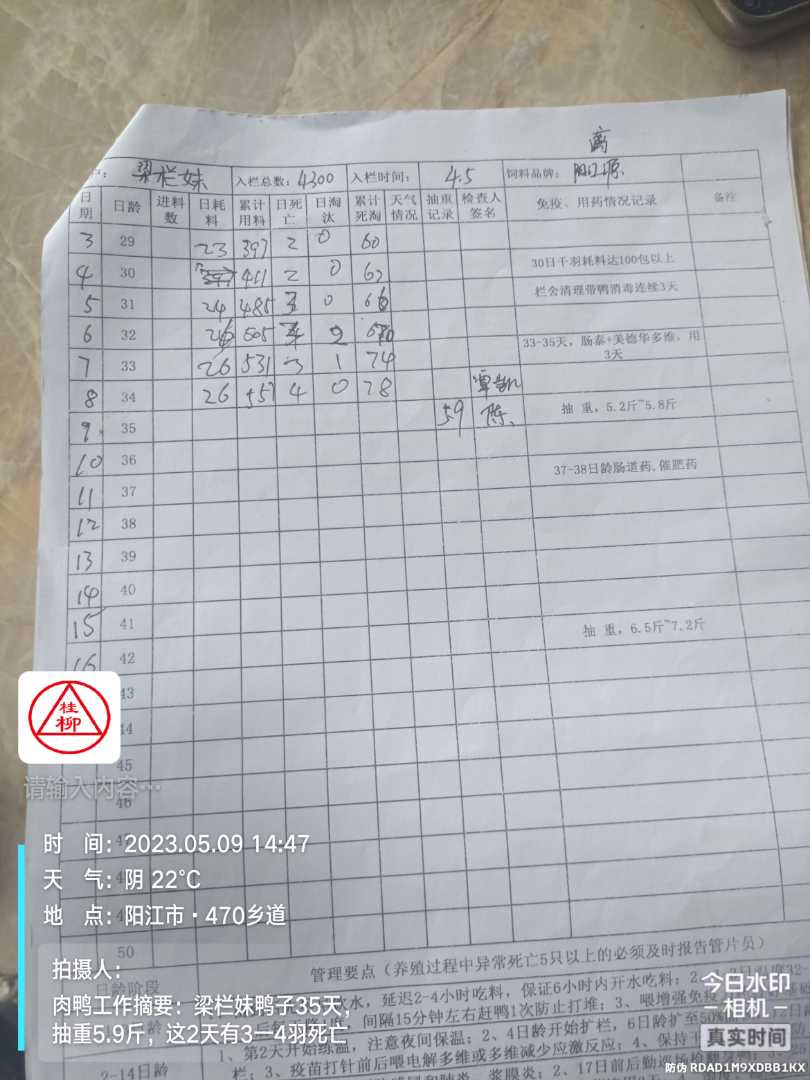 离
梁栏妹 入栏总数：4300 入栏时间： 4.5 饲料品牌：
日期 日龄 进料数 日耗料 累计用料 日死亡 日淘汰 累计死淘 天气情况 抽重记录 检查人签名 免疫、用药情况记录 备注
3 29 23 397 2 0 60
4 30 411 2 0 62 30日千羽耗料达100包以上
5 31 24 485 3 0 66 栏舍清理带鸭消毒连续3天
6 32 26 505 2
33-35天，肠泰+美德华多维，用3天
7 33 26 531 3 1 74
8 34 26 557 4 0 78
9 35 59 陈 抽 重，5.2斤~5.8斤
10 36
37-38日龄肠道药,催肥药
11 37
12 38
13 39
14 40
15 41 抽 重，6.5斤~7.2斤
16 42
43
44
45
46
50
桂柳
请输入内容…
时 间：2023.05.09 14:47
天 气：阴 22℃
地 点：阳江市·470乡道
拍摄人：
肉鸭工作摘要：梁栏妹鸭子35天，
抽重5.9斤，这2天有3一4羽死亡
管理要点（养殖过程中异常死亡5只以上的必须及时报告管片员）
日龄阶段
饮水，延迟2-4小时吃料，保证6小时内开水吃料；2、
间隔15分钟左右赶鸭1次防止打堆；3、喂增强免疫
2-14日龄
1、第2天开始练温，注意夜间保温；2、4日龄开始扩栏，6日龄扩至50
栏；3、疫苗打针前后喂电解多维或多维减少应激反应；4、保持干
今日水印
相机
真实时间
防伪 RDAD1M9XDBB1KX